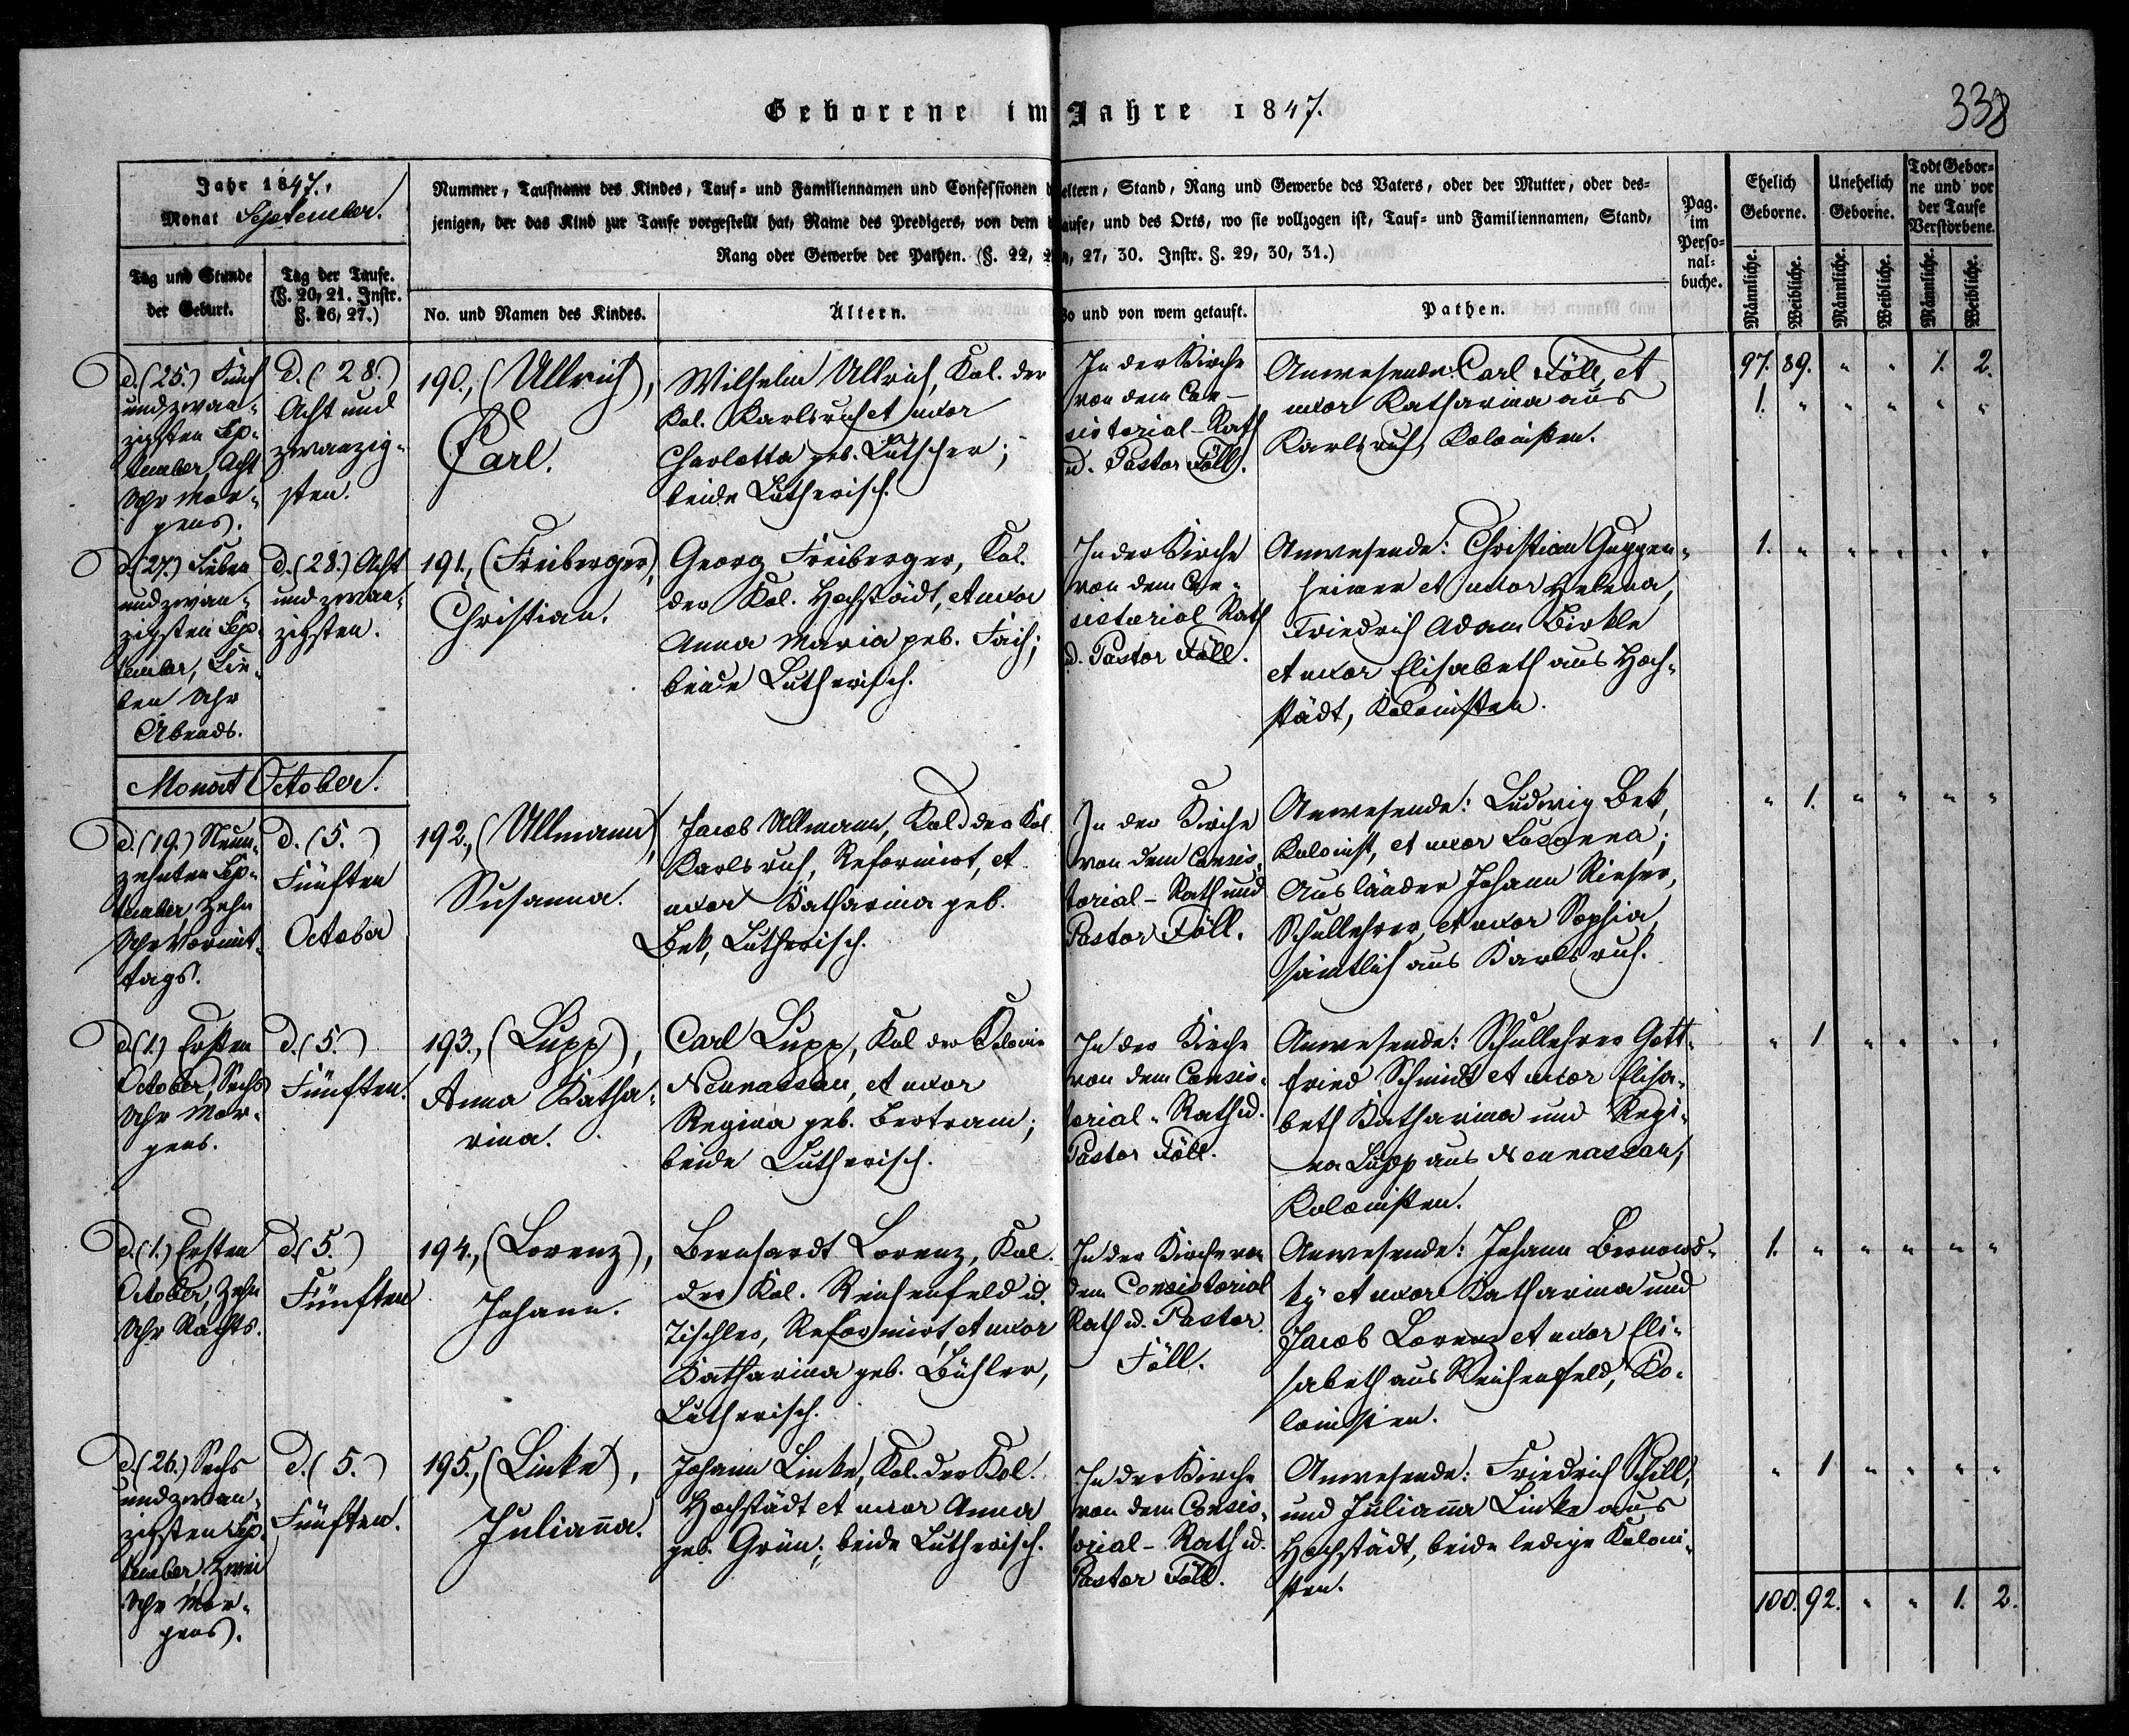 Geborene im Jahre 1847.
338
Jahr 1847.
Monat September.
Nummer, Taufname des Kindes, Tauf- und Familiennamen und Confessionen eltern, Stand, Rang und Gewerbe des Vaters, oder der Mutter, oder des-
jenigen, der das Kind zur Taufe vorgestellt hat, Name des Predigers, von dem aufe, und des Orts, wo sie vollzogen ist, Tauf- und Familiennamen, Stand,
Rang oder Gewerbe der Pathen. (§. 22, 27, 30. Instr. §. 29, 30, 31.)
Tag und Stunde
der Geburt.
Tag der Taufe.
(§. 20, 21. Instr.
§. 26, 27.)
No. und Namen des Kindes.
Ältern.
Wo und von wem getauft.
Pathen.
Pag.
im
Perso-
nal-
buche.
Ehelich
Geborne.
Unehelich
Geborne.
Todt Gebor-
ne und vor
der Taufe
Verstorbene.
Männliche.
Weibliche.
Männliche.
Weibliche.
Männliche.
Weibliche.
d. (25.) Fünf
und zwan-
zigsten Sep-
tember, Acht
Uhr Mor-
gens.
D. (28.)
Acht und
zwanzig-
sten.
190., (Ullrich),
Carl.
Wilhelm Ullrich, Kol. der
Kol. Karlsruh et uxor
Charlotta geb. Lutscher;
beide Lutherisch.
In der Kirche
von dem Con-
sistorial-Rath
u. Pastor Föll.
Anwesende: Carl Föll, et
uxor Katharina aus
Karlsruh, Kolonisten.
97. 89. " " 1. 2.
1. " " " " "
d. (27.) Sieben
und zwan-
zigsten Sep-
tember, Sie-
ben Uhr
Abends.
d. (28.) Acht
und zwan-
zigsten.
191., (Freiberger),
Christian.
Georg Freiberger, Kol.
der Kol. Hochstädt, et uxor
Anna Maria geb. Faih;
beide Lutherisch.
In der Kirche
von dem Con-
sistorial Rath
u. Pastor Föll.
Anwesende: Christian Guggen-
heimer et uxor Helena,
Friedrich Adam Birkle
et uxor Elisabeth aus Hoch-
städt, Kolonisten.
1. " " " " "
Monat October.
d. (19.) Neun-
zehnten Sep-
tember, Zehn
Uhr Vormit-
tags.
d. (5.)
Fünften
October
192., (Ullmann),
Susanna.
Jacob Ullmann, Kol. der Kol.
Karlsruh, Reformirt, et
uxor Katharina geb.
Bek, Lutherisch.
In der Kirche
von dem Consis-
torial-Rath und
Pastor Föll.
Anwesende: Ludwig Bek,
Kolonist, et uxor Rosina;
Ausländer Johann Rieser,
Schullehrer, et uxor Sophia,
sämtlich aus Karlsruh.
" 1. " " " "
d. (1.) Ersten
October, Sechs
Uhr Mor-
gens.
d. (5.)
Fünften.
193., (Lupp),
Anna Katha-
rina.
Carl Lupp, Kol. der Kolonie
Neunassau, et uxor
Regina geb. Bertram;
beide Lutherisch.
In der Kirche
von dem Consis-
torial-Rath u.
Pastor Föll.
Anwesende: Schullehrer Gott-
fried Schmidt et uxor Elisa-
beth Katharina und Regi-
na Lupp aus Neunassau,
Kolonisten.
" 1 " " " "
d. (1.) Ersten
October, Zehn
Uhr Nachts.
d. (5.)
Fünften
194., (Lorenz),
Johann.
Bernhardt Lorenz, Kol.
der Kol. Reichenfeld u.
Tischler, Reformirt, et uxor
Katharina geb. Bühler,
Lutherisch.
In der Kirche von
dem Consistorial
Rath u. Pastor
Föll.
Anwesende: Johann Bernows-
ky et uxor Katharina und
Jacob Lorenz et uxor Eli-
sabeth aus Reichenfeld, Ko-
lonisten.
1. " " " " "
d. (26.) Sechs
und zwan-
zigsten Sep-
tember, Zwei
Uhr Mor-
gens.
d. (5.)
Fünften.
195., (Linke),
Julianna.
Johann Linke, Kol. der Kol.
Hochstädt et uxor Anna
geb. Grün; beide Lutherisch.
In der Kirche
von dem Consis-
torial-Rath u.
Pastor Föll.
Anwesende: Friedrich Schill,
und Julianna Linke aus
Hochstädt, beide ledige Koloni-
sten.
" 1 " " " "
100. 92. " " 1. 2.